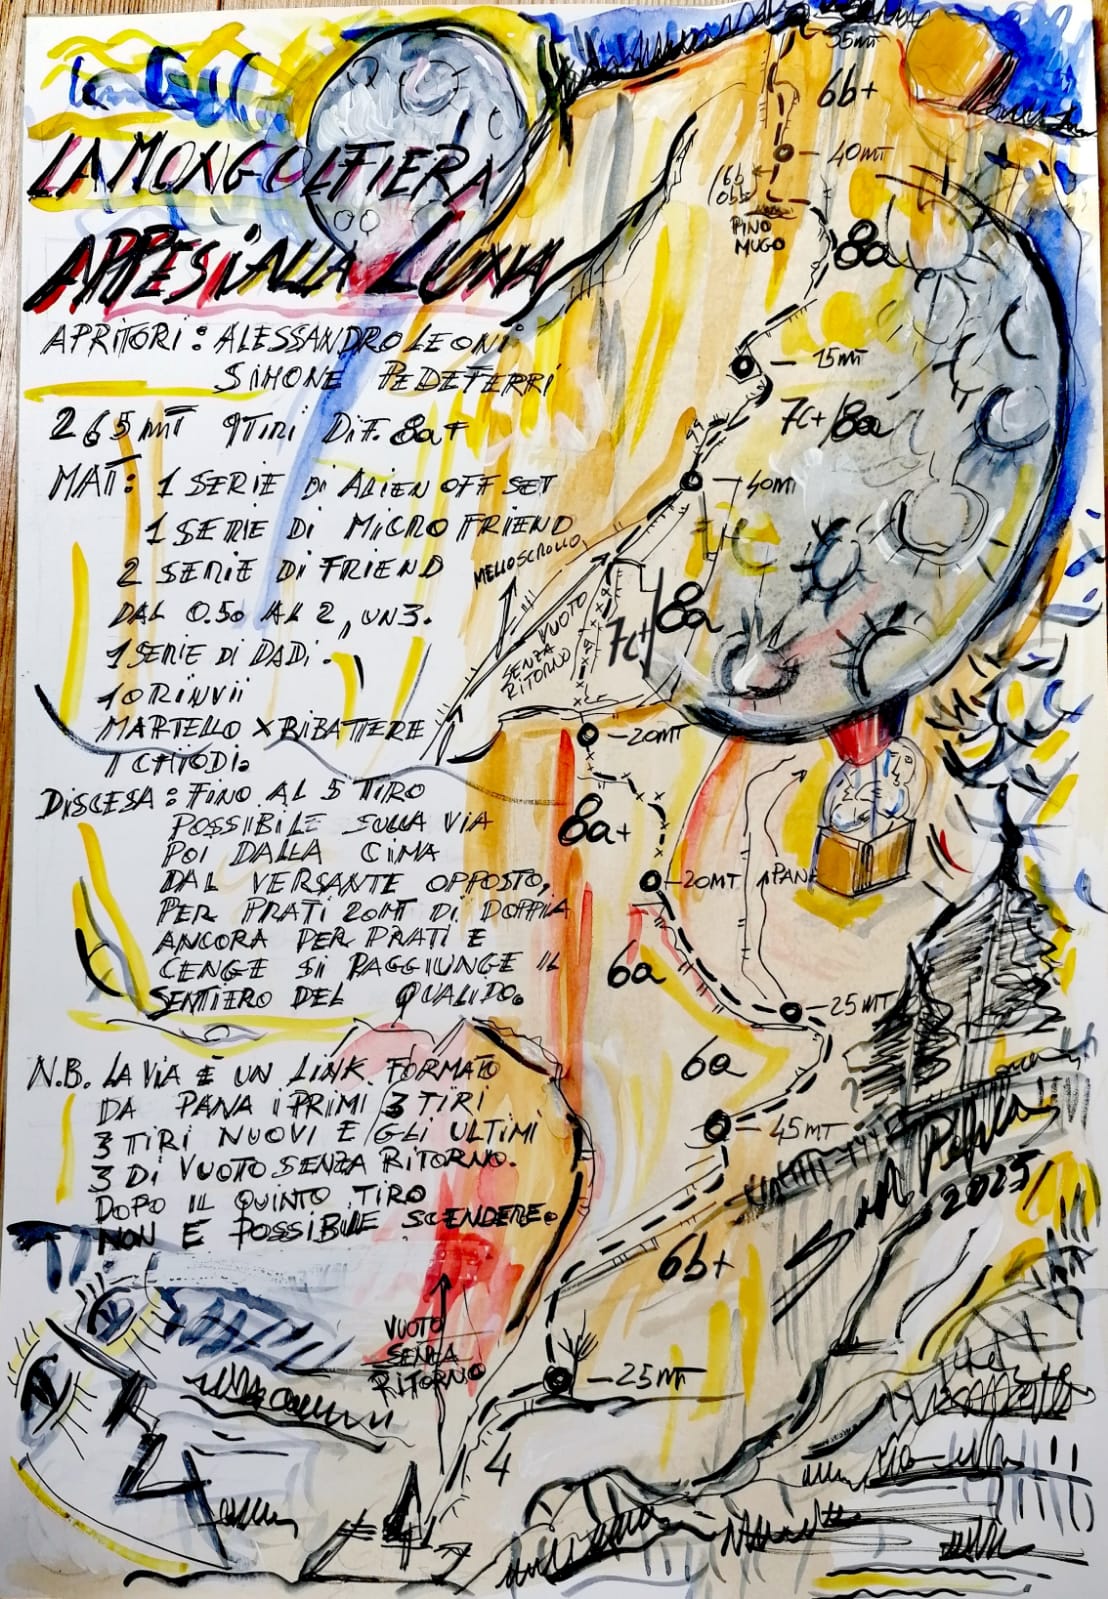 LA MONGOLFIERA
APPESI ALLA LUNA
APRITORI: ALESSANDRO LEONI
SIMONE PEDEFERRI
265 mT 9 TIRI DIF. 8a+
MAT: 1 SERIE DI ALIEN OFF SET
1 SERIE DI MICRO FRIEND
2 SERIE DI FRIEND
DAL 0.50 AL 2, UN 3.
1 SERIE DI DADI.
10 RINVII
MARTELLO X RIBATTERE
I CHIODI.
DISCESA: FINO AL 5 TIRO
POSSIBILE SULLA VIA
POI DALLA CIMA
DAL VERSANTE OPPOSTO,
PER PRATI 20MT DI DOPPIA
ANCORA PER PRATI E
CENGE SI RAGGIUNGE IL
SENTIERO DEL QUALIDO.
N.B. LA VIA È UN LINK FORMATO
DA PANA I PRIMI 3 TIRI
3 TIRI NUOVI E GLI ULTIMI
3 DI VUOTO SENZA RITORNO.
DOPO IL QUINTO TIRO
NON E POSSIBILE SCENDERE.
35mT
6b+
40mT
6b
PINO
MUGO
8a
15mT
7c+/8a
40mT
MELLOSCROLLO
SENZA VUOTO
RITORNO
7c+/8a
20mT
8a+
20MT
PAN
6a
25MT
6a
45MT
6b+
2025
VUOTO
SENZA
RITORNO
25mT
4